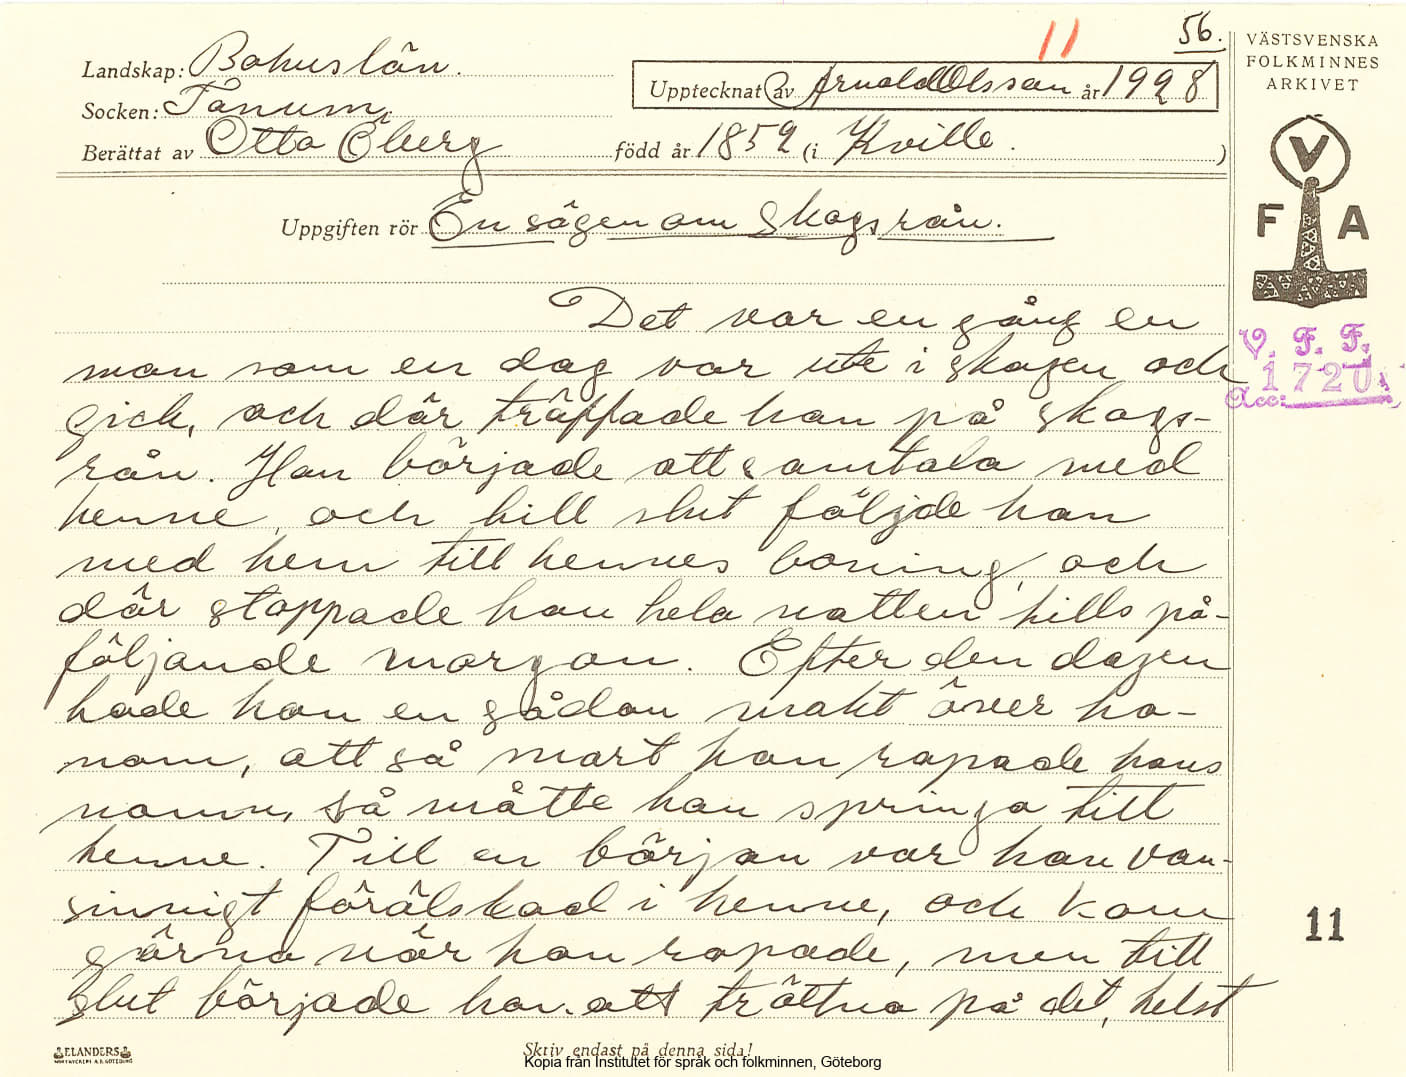 11
56.
Landskap: Bohuslän.
Upptecknat av Arnold Olsson år 1928
Socken: Tanum.
Berättat av Otto Öberg född år 1852 (i Kville. )
Uppgiften rör En sägen om skogsrån.
VÄSTSVENSKA
FOLKMINNES
ARKIVET
V
F A
V. F. F.
Acc: 1720
Det var en gång en
man som en dag var ute i skogen och
gick, och där träffade han på skogs-
rån. Han började att samtala med
henne, och till slut följde han
med hem till hennes boning, och
där stoppade han hela natten tills på-
följande morgon. Efter den dagen
hade hon en sådan makt över ho-
nom, att så snart hon ropade hans
namn, så måtte han springa till
henne. Till en början var han van-
sinnigt förälskad i henne, och kom
gärna när hon ropade, men till
slut började han att tröttna på det, helst
11
ELANDERS
Skriv endast på denna sida!
Kopia från Institutet för språk och folkminnen, Göteborg